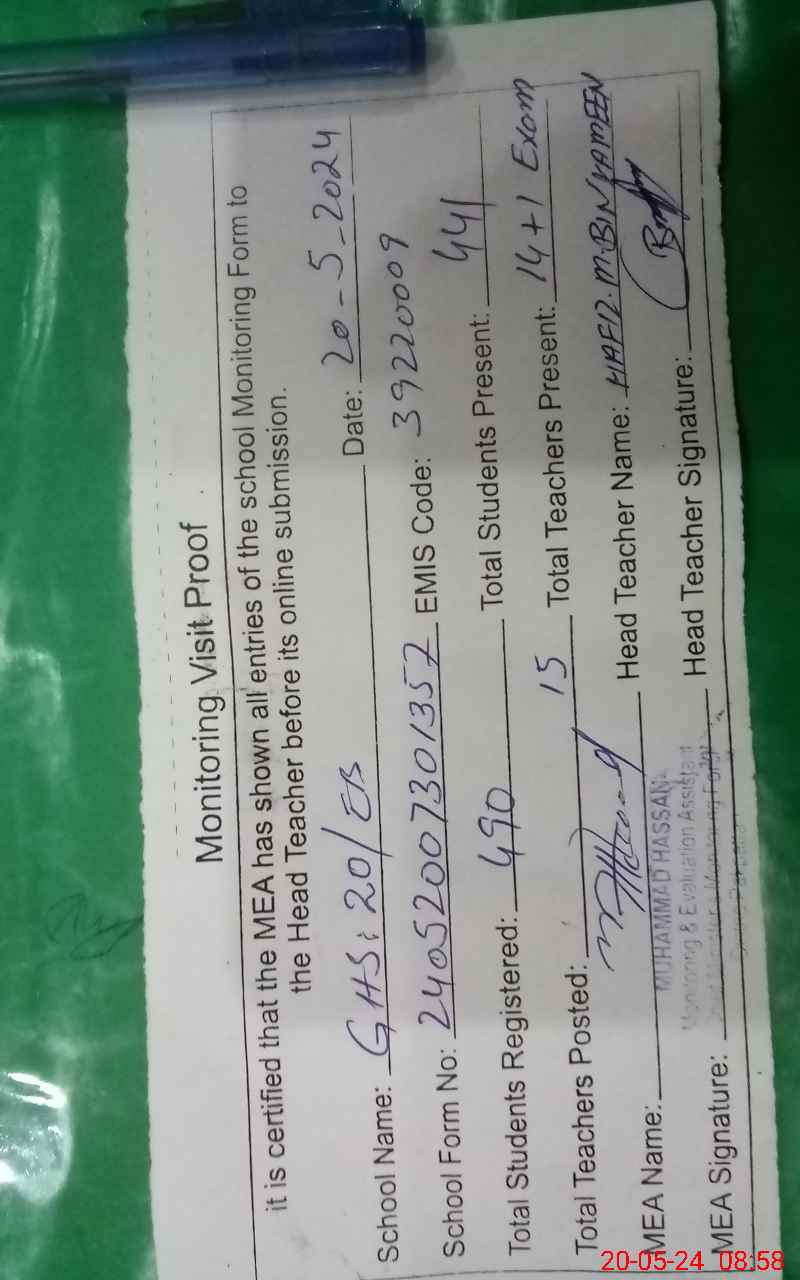 Monitoring Visit Proof
it is certified that the MEA has shown all entries of the school Monitoring Form to
the Head Teacher before its online submission.
School Name: GHS: 20/EB Date: 20-5-2024
School Form No: 24052007301357 EMIS Code: 39220009
Total Students Registered: 490 Total Students Present: 441
Total Teachers Posted: 15 Total Teachers Present: 14+1 Exam
MEA Name: Head Teacher Name: HAFIZ.M.BINYAMEEN
MUHAMMAD HASSAN
Monitoring & Evaluation Assistant
Chief Minister's Monitoring Force
MEA Signature: Head Teacher Signature:
20-05-24 08:58